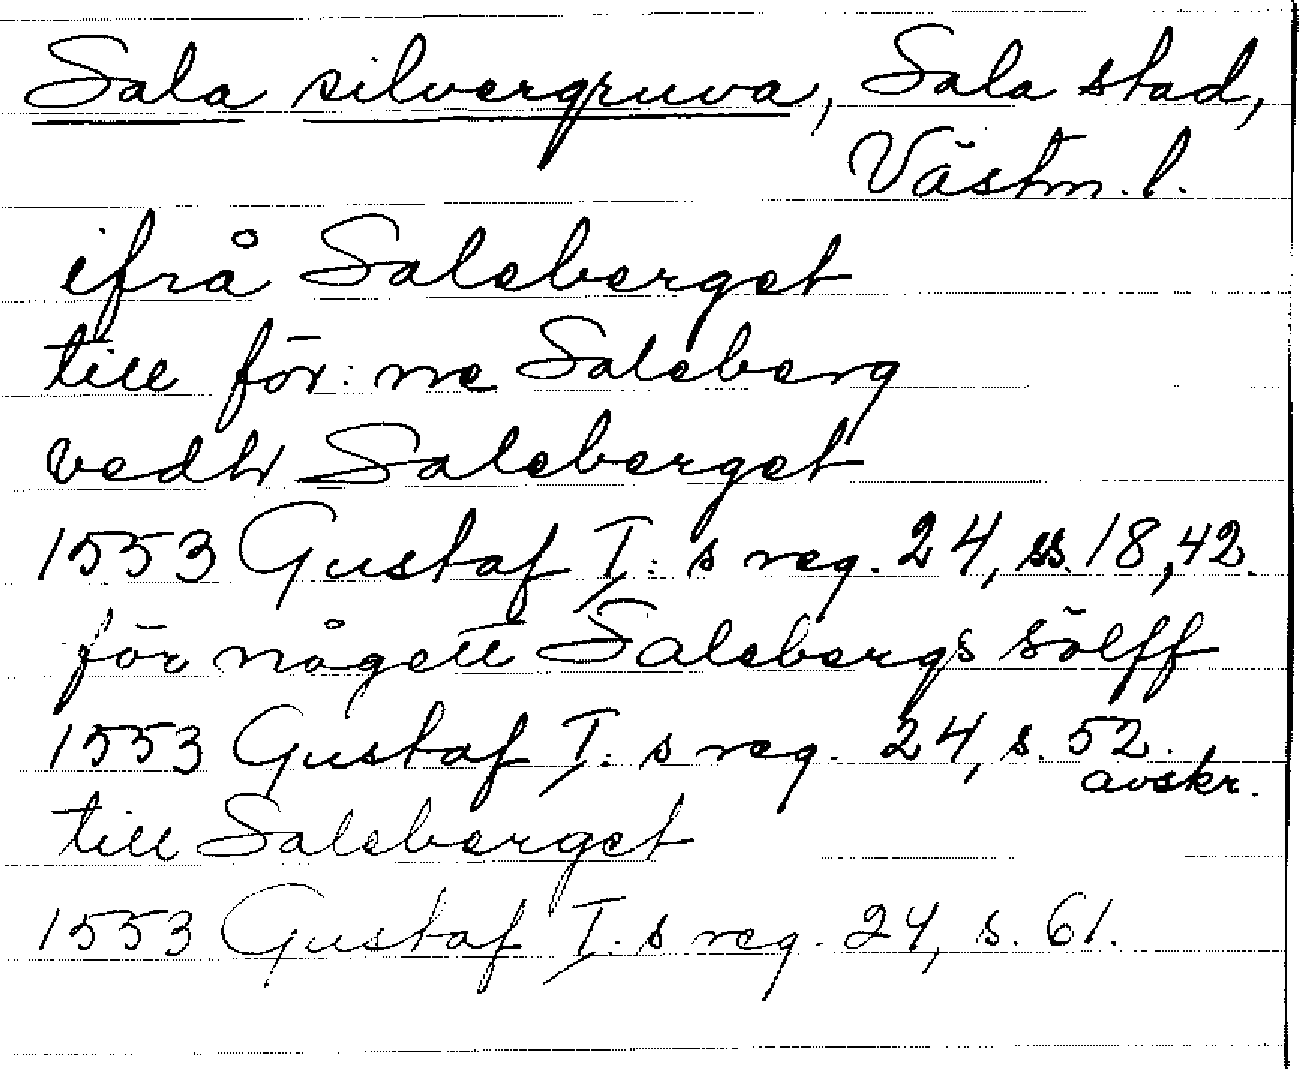 Sala silvergruva, Sala stad,
Västm. l.
ifrå Saleberget
till för: ne Saleberg
vedh Saleberget
1553 Gustaf I: s reg. 24, ss. 18, 42.
för någett Salebergs sölff
1553 Gustaf I: s reg. 24, s. 52.
avskr.
till Saleberget
1553 Gustaf I. s reg. 24, s. 61.